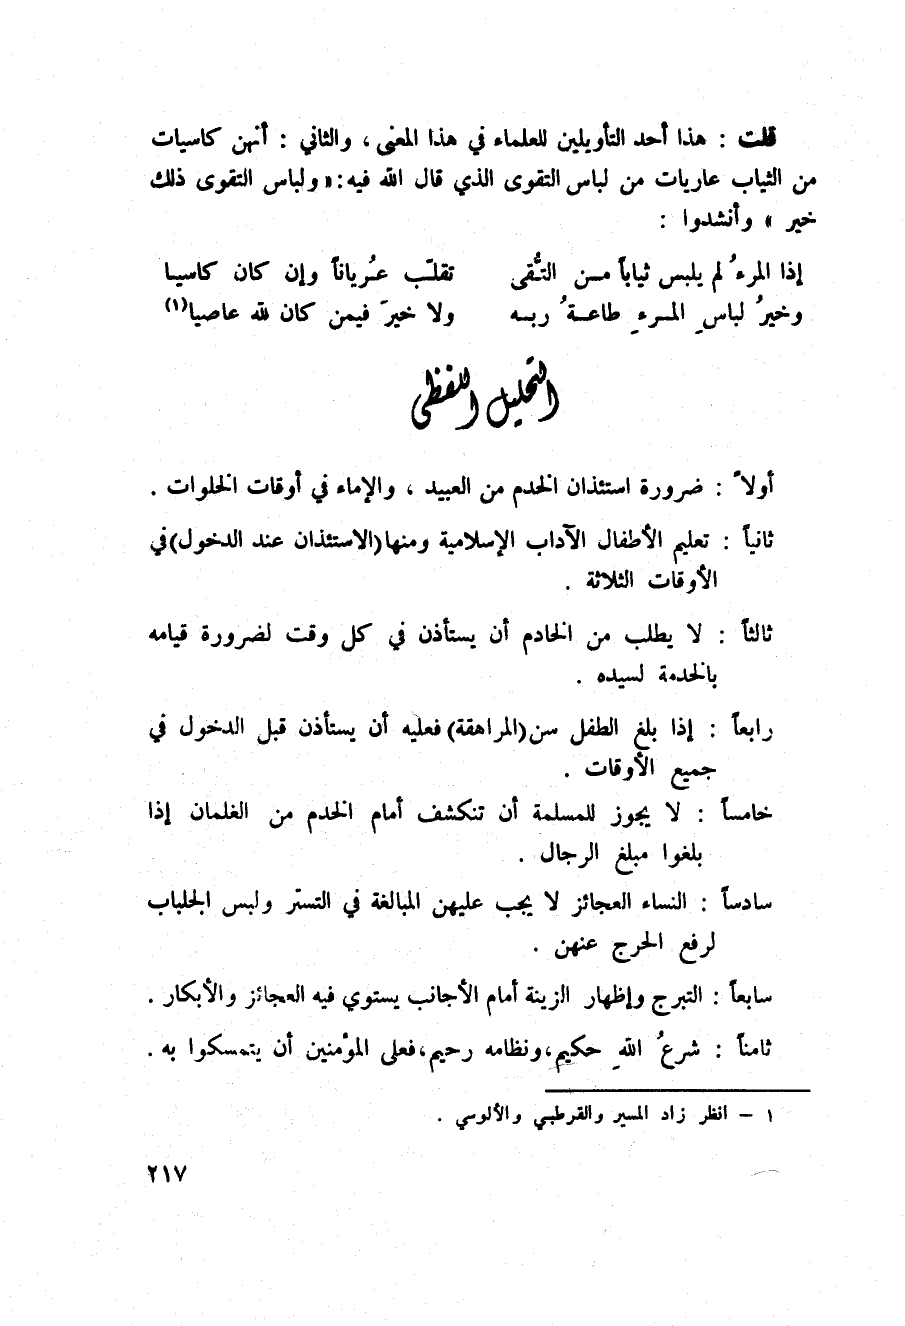 قلت : هذا أحد التأويلين للعلماء في هذا المعنى ، والثاني : أنهن كاسيات
من الثياب عاريات من لباس التقوى الذي قال الله فيه : « ولباس التقوى ذلك
خير » وأنشدوا :
إذا المرءُ لم يلبس ثياباً مـن التُّقى تقلّب عُرياناً وإن كان كاسيا
وخيرُ لباسِ المـرءِ طاعـةُ ربـه ولا خيرَ فيمن كان لله عاصيا(١)
التحليل اللفظي
أولاً : ضرورة استئذان الخدم من العبيد ، والإماء في أوقات الخلوات .
ثانياً : تعليم الأطفال الآداب الإسلامية ومنها (الاستئذان عند الدخول) في
الأوقات الثلاثة .
ثالثاً : لا يطلب من الخادم أن يستأذن في كل وقت لضرورة قيامه
بالخدمة لسيده .
رابعاً : إذا بلغ الطفل سن (المراهقة) فعليه أن يستأذن قبل الدخول في
جميع الأوقات .
خامساً : لا يجوز للمسلمة أن تنكشف أمام الخدم من الغلمان إذا
بلغوا مبلغ الرجال .
سادساً : النساء العجائز لا يجب عليهن المبالغة في التستّر ولبس الجلباب
لرفع الحرج عنهن .
سابعاً : التبرج وإظهار الزينة أمام الأجانب يستوي فيه العجائز والأبكار .
ثامناً : شرعُ اللهِ حكيم، ونظامه رحيم، فعلى المؤمنين أن يتمسكوا به .
١ – انظر زاد المسير والقرطبي والألوسي .
٢١٧